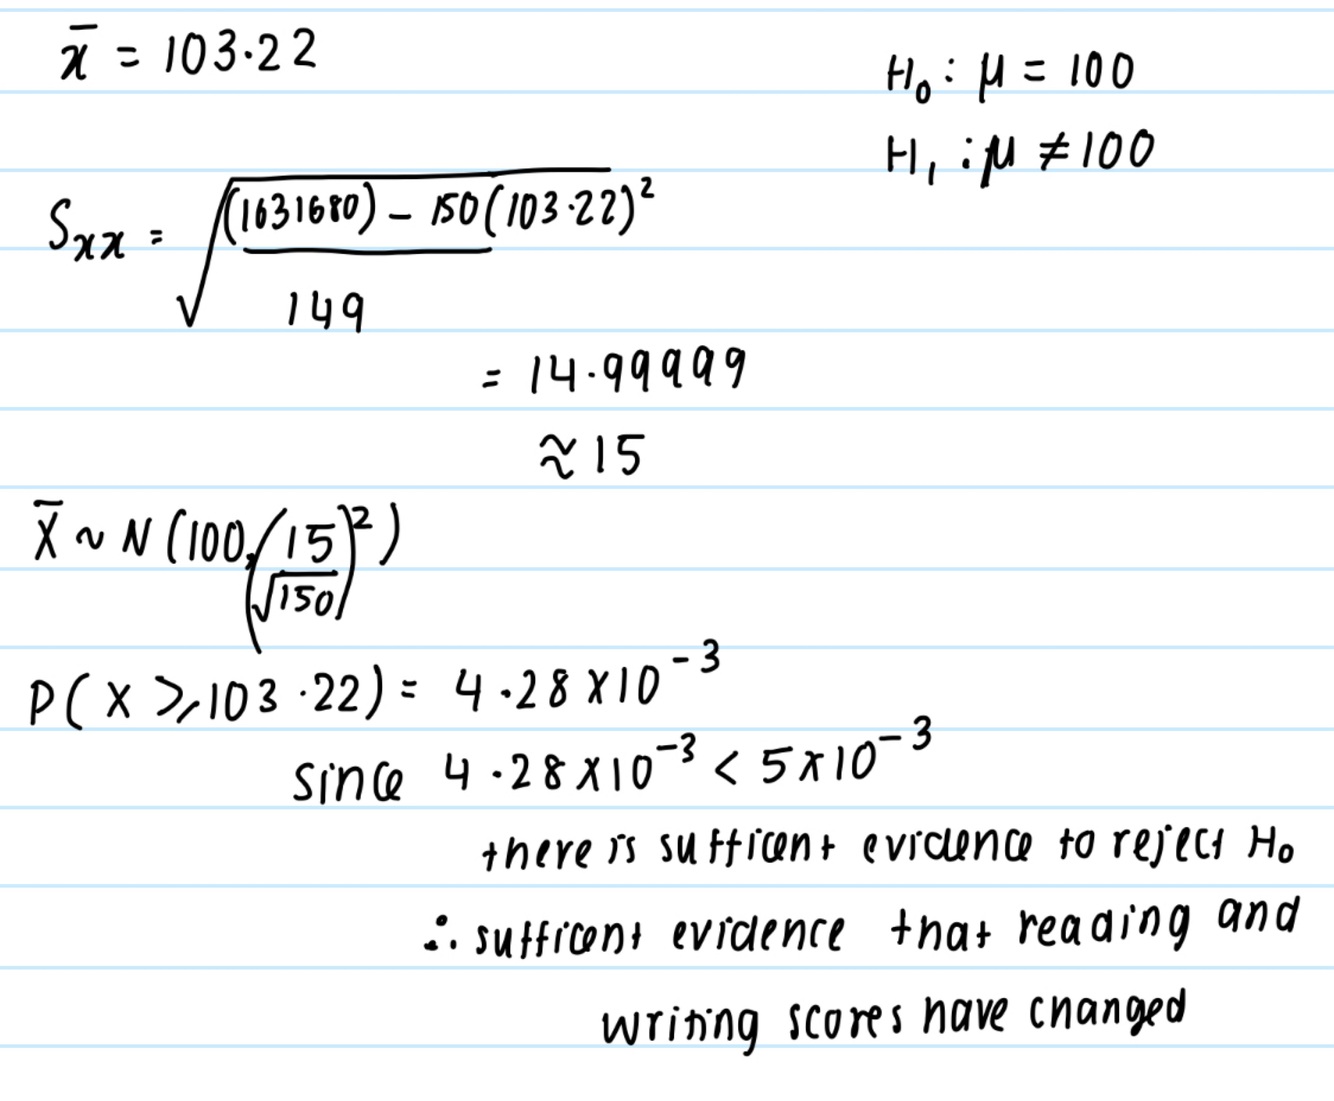 x̄ = 103.22
H₀ : μ = 100
H₁ : μ ≠ 100
Sxx = √((1631680) − 150(103.22)² / 149)
= 14.99999
≈ 15
X̄ ~ N(100, (15/√150)²)
P(X ≥ 103.22) = 4.28 × 10⁻³
since 4.28 × 10⁻³ < 5 × 10⁻³
there is sufficent evidence to reject H₀
∴ sufficent evidence that reading and
writing scores have changed